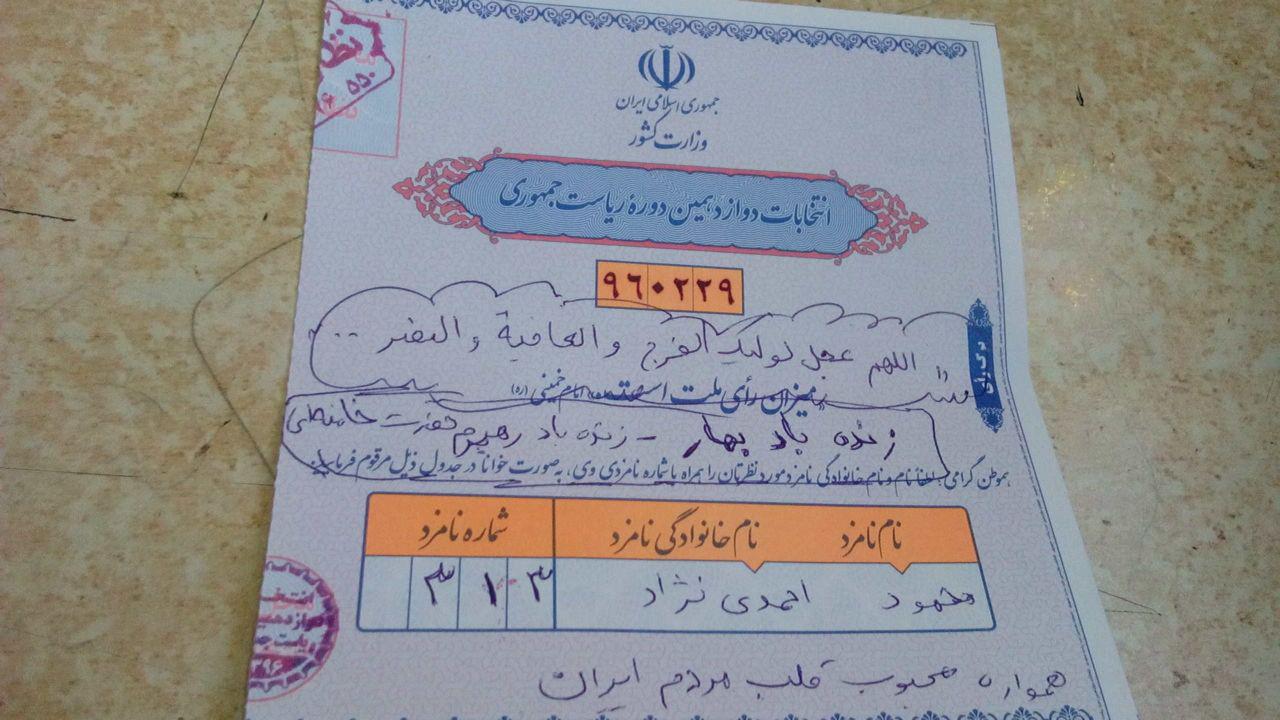 جمهوری اسلامی ایران
وزارت کشور
انتخابات دوازدهمین دوره ریاست جمهوری
۹۶۰۲۲۹
اللهم عجل لولیک الفرج والعافیة والنصر
میزان رأی ملت است امام خمینی (ره)
زنده باد بهار - زنده باد حضرت خامنه‌ای
هموطن گرامی، لطفا نام و نام خانوادگی نامزد مورد نظرتان را همراه با شماره نامزدی وی، به صورت خوانا در جدول ذیل مرقوم فرمایید
نام نامزد نام خانوادگی نامزد شماره نامزد
محمود احمدی نژاد ۳۱۳
همواره محبوب قلب مردم ایران